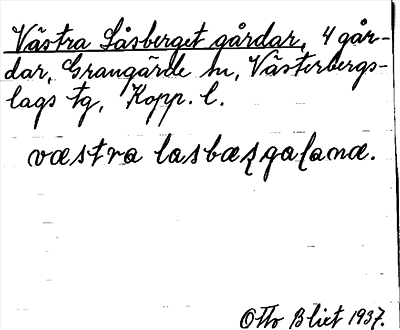 Västra Låsberget gårdar, 4 går-
dar, Grangärde sn, Västerbergs-
lags tg, Kopp. l.
væstra lasbæꞎgaɽanæ.
Otto Blixt 1937.